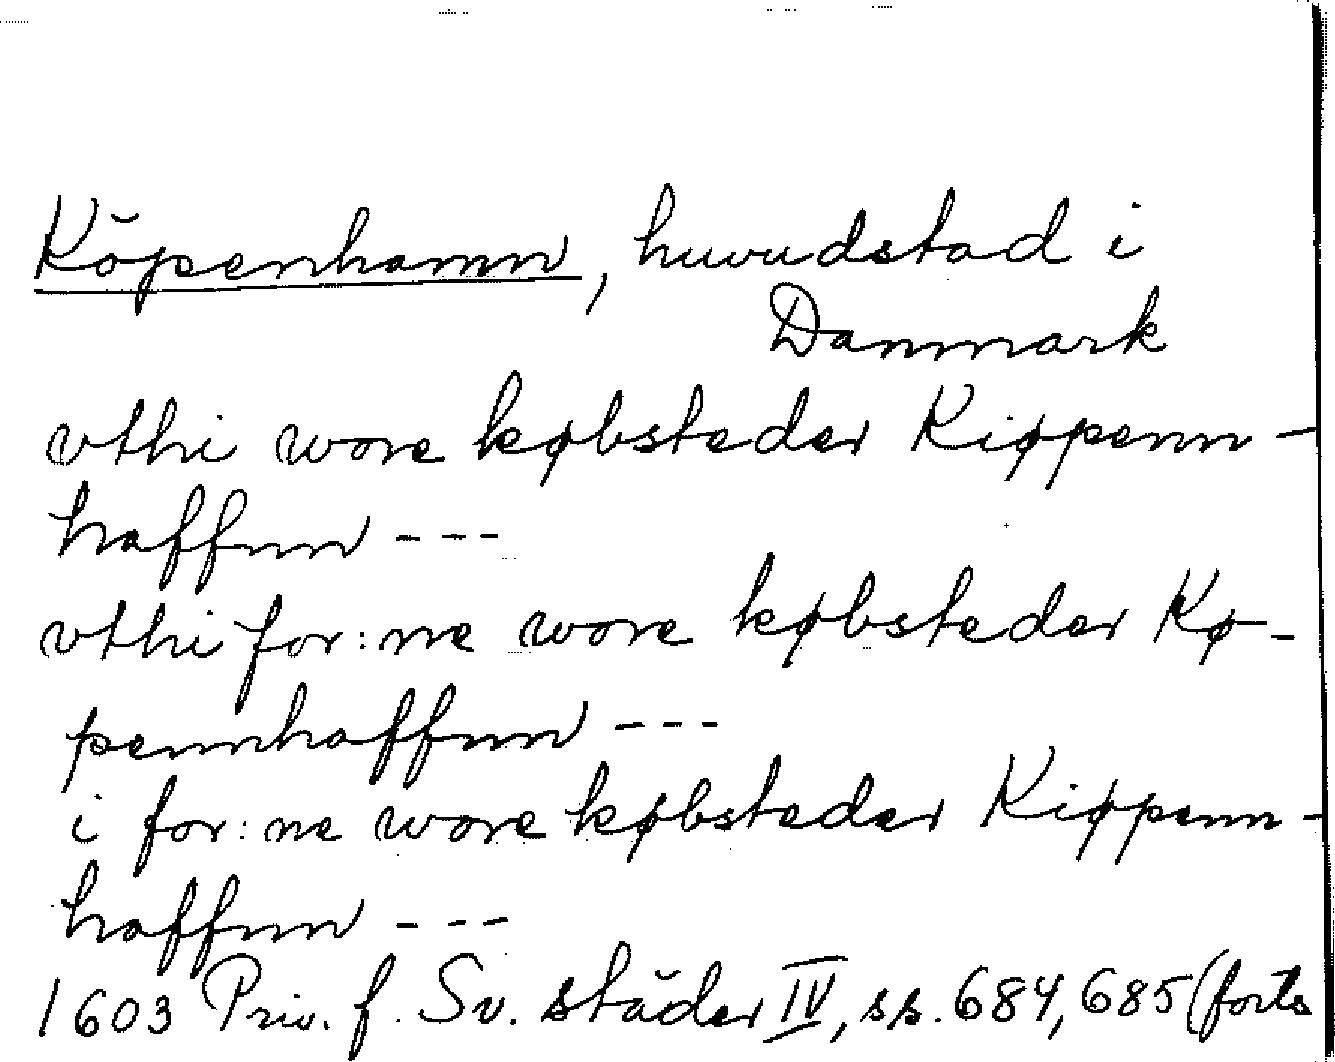 Köpenhamn, huvudstad i
Danmark
vthi wore købsteder Kiøpenn-
haffnn ---
vthi for:ne wore købsteder Kø-
pennhaffnn ---
i for:ne wore købsteder Kiøpenn-
haffnn ---
1603 Priv. f. Sv. städer IV, ss. 684, 685 (forts